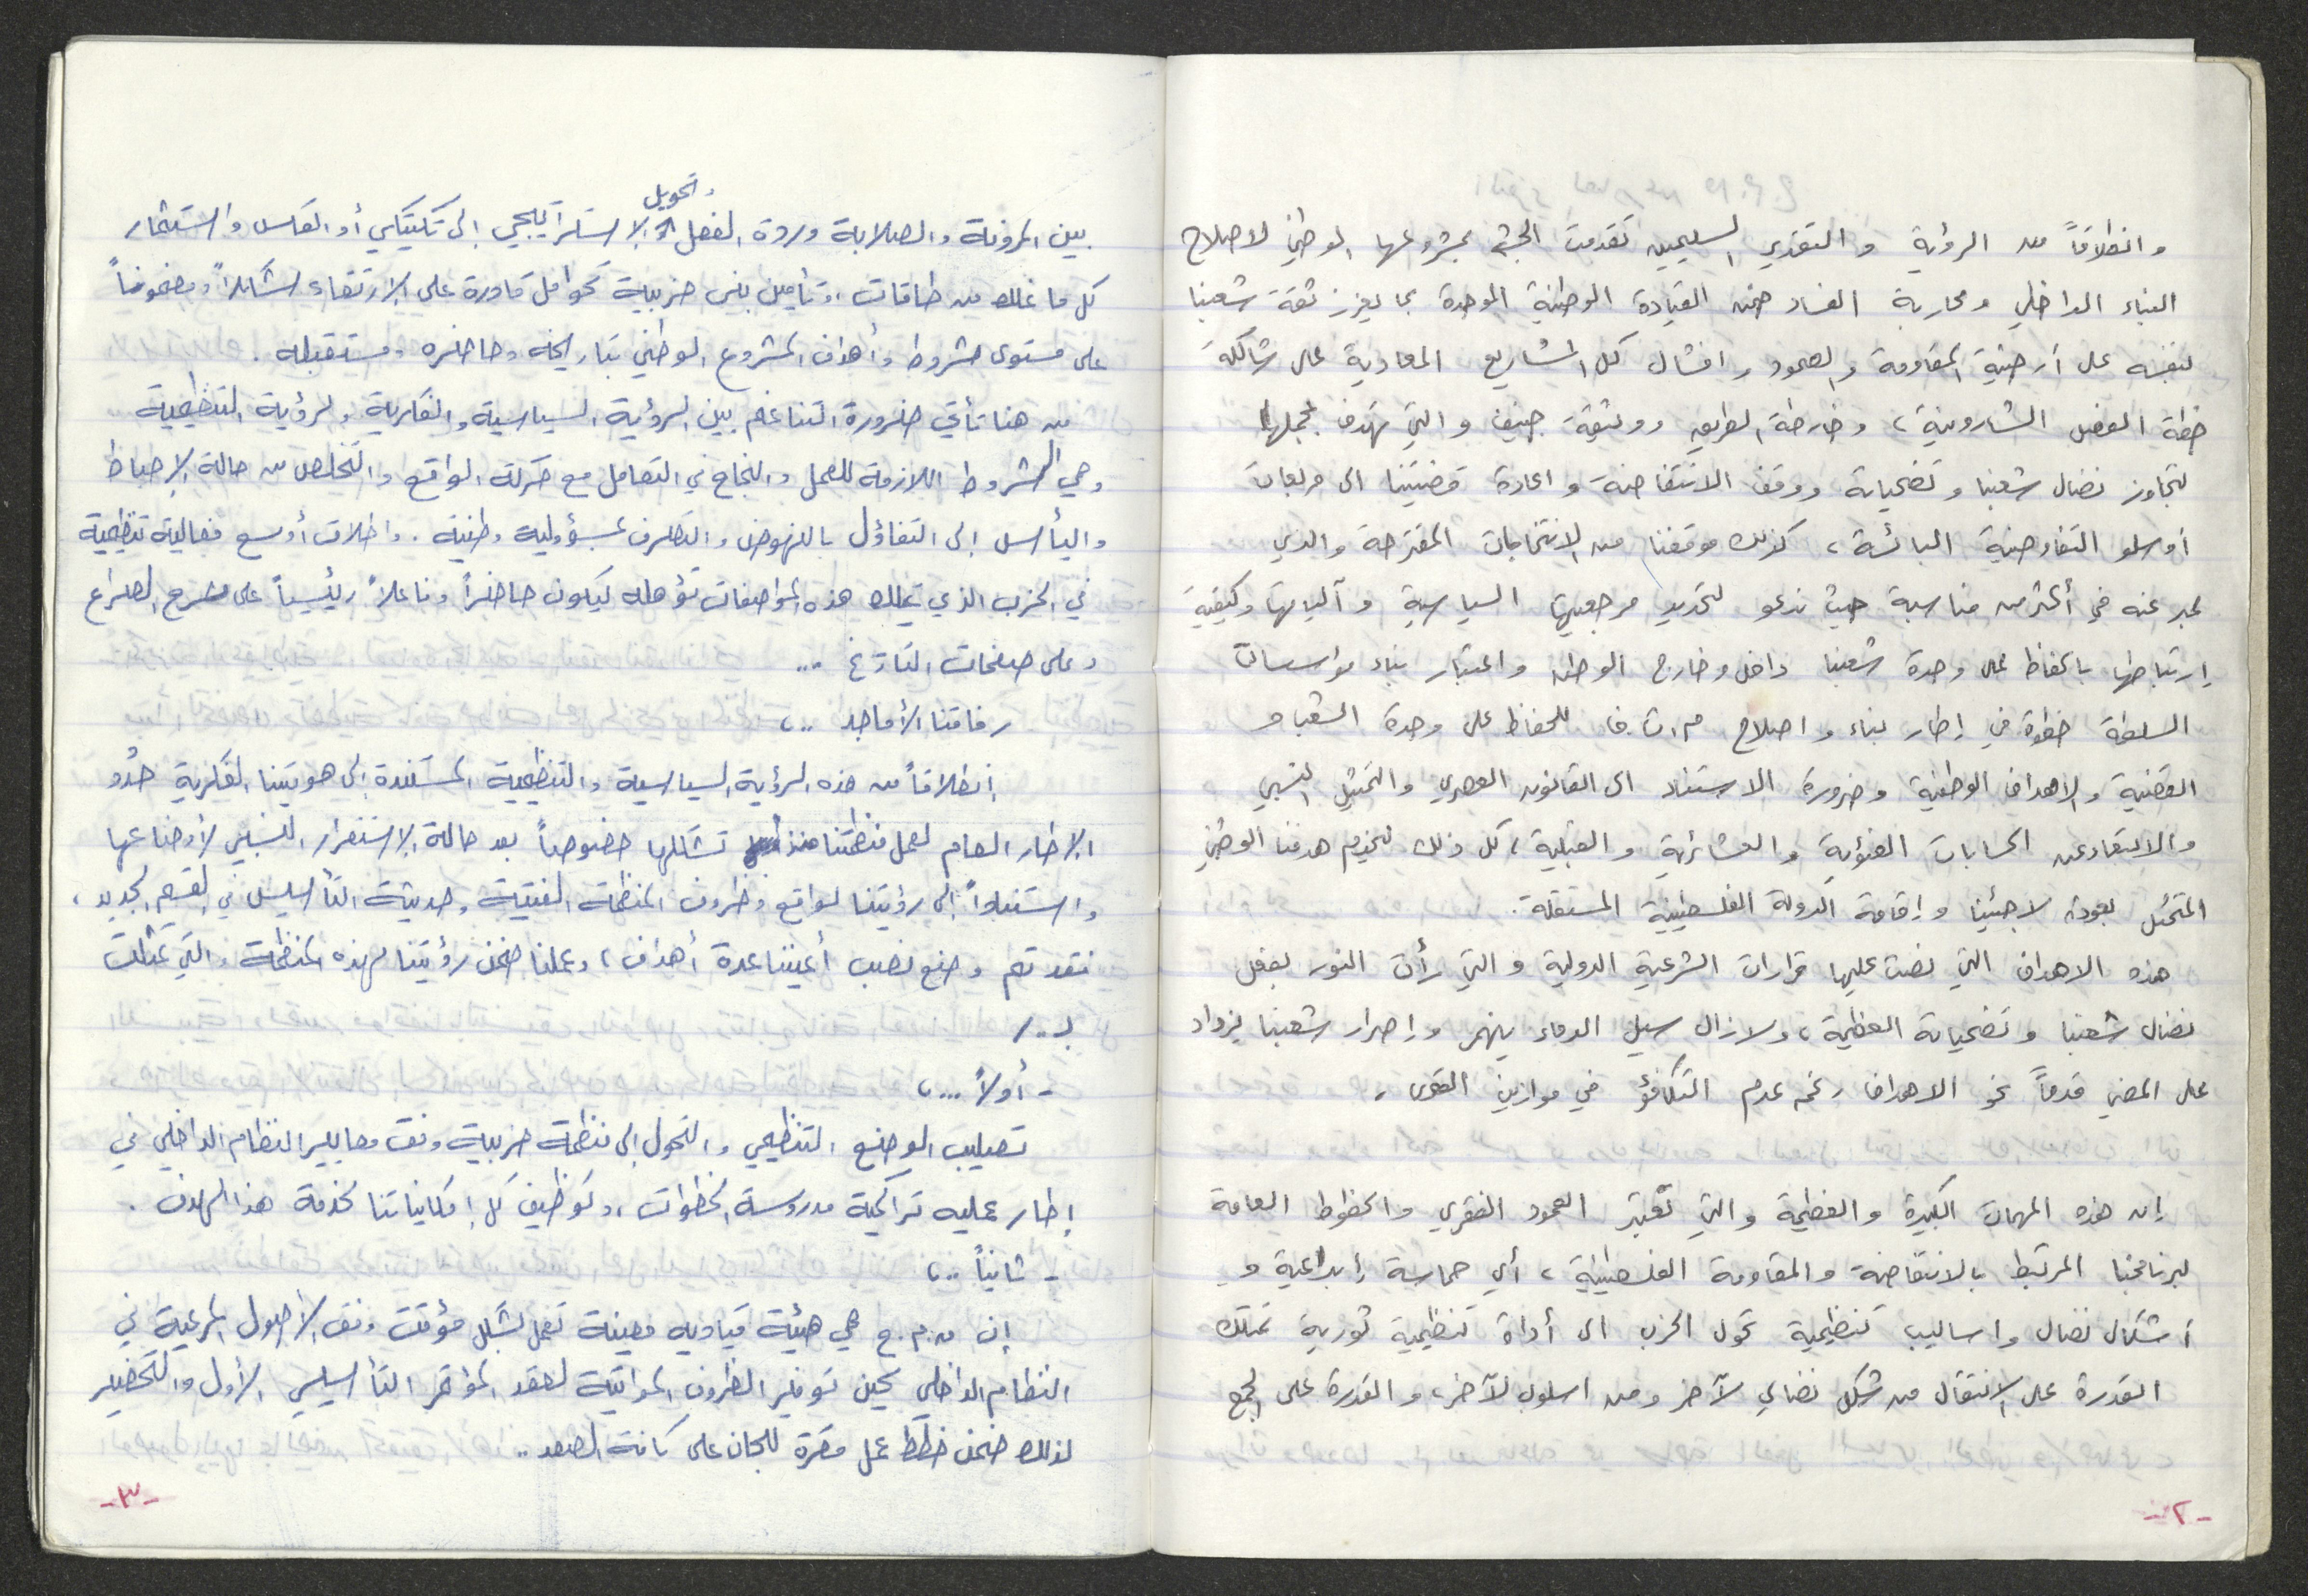 وانطلاقاً من الرؤية والتقدير السليمين تقدمت الجبهة بمشروعها الوطني لاصلاح
البناء الداخلي ومحاربة الفساد ضمن القيادة الوطنية الموحدة بما يعزز ثقة شعبنا
بنفسه على أرضية المقاومة والصمود وافشال كل المشاريع المعادية على شاكلة
خطة الفصل الشارونية، وخارطة الطريق ووثيقة جنيف والتي تهدف بمجملها
لتجاوز نضال شعبنا وتضحياته ووقف الانتفاضة واعادة قضيتنا الى مربعات
أوسلو التفاوضية البائسة، كذلك موقفنا من الانتخابات المقترحة والذي
عبر عنه في أكثر من مناسبة حيث ندعو لتحديد مرجعيتها السياسية وآلياتها وكيفية
إرتباطها بالحفاظ على وحدة شعبنا داخل وخارج الوطن واعتبار بناء مؤسسات
السلطة خطوة في إطار بناء واصلاح م.ت.ف للحفاظ على وحدة الشعب و
القضية والاهداف الوطنية وضرورة الاستناد الى القانون العصري والتمثيل النسبي
والابتعاد عن الحسابات الفئوية والعشائرية والقبلية، كل ذلك لتخدم هدفنا الوطني
المتمثل بعودة لاجئينا وإقامة الدولة الفلسطينية المستقلة.
هذه الاهداف التي نصت عليها قرارات الشرعية الدولية والتي رأت النور بفعل
نضال شعبنا وتضحياته العظيمة، ولا زال سيل الدماء ينهمر وإصرار شعبنا يزداد
على المضي قدماً نحو الاهداف رغم عدم التكافؤ في موازين القوى.
إن هذه المهمات الكبيرة والعظيمة والتي تعتبر العمود الفقري والخطوط العامة
لبرنامجنا المرتبط بالانتفاضة والمقاومة الفلسطينية، أي حماسة إبداعية و
أشكال نضال واساليب تنظيمية تحول الحزب الى أداة تنظيمية ثورية تمتلك
القدرة على الانتقال من شكل نضالي لآخر ومن اسلوب لآخر، والقدرة على الجمع
-٢-
وتحويل
بين المرونة والصلابة وردة الفعل الاستراتيجي إلى تكتيكي أو العكس واستثمار
كل ما نملك من طاقات، وتأمين بنى حزبية كحوامل قادرة على الإرتقاء شكلاً ومضموناً
على مستوى شروط وأهداف المشروع الوطني بتاريخه وحاضره ومستقبله.
من هنا تأتي ضرورة التناغم بين الرؤية السياسية والفكرية والرؤية التنظيمية
وهي الشروط اللازمة للعمل والنجاح في التعامل مع حركة الواقع والتخلص من حالة الإحباط
واليأس إلى التفاؤل بالنهوض والتصرف بمسؤولية وطنية. واطلاق أوسع فعالية تنظيمية
في الحزب الذي يملك هذه المواصفات تؤهله ليكون حاضراً وفاعلاً رئيسياً على مسرح الصراع
وعلى صفحات التاريخ ...
رفاقنا الأماجد ..،
إنطلاقاً من هذه الرؤية السياسية والتنظيمية المستندة إلى هويتنا الفكرية حدد
الإطار العام لعمل منظمتنا منذ تشكلها خصوصاً بعد حالة الإستقرار النسبي لأوضاعها
واستناداً إلى رؤيتنا لواقع وظروف المنظمة الفتية وحديثة التأسيس في القسم الجديد،
فقد تم وضع نصب أعيننا عدة أهداف، وعملنا ضمن رؤيتنا لهذه المنظمة والتي تمثلت
بـ../
- أولاً...،
تصليب الوضع التنظيمي والتحول إلى منظمة حزبية وفق معايير النظام الداخلي في
إطار عمليه تراكمية مدروسة الخطوات، وتوظيف كل إمكانياتنا لخدمة هذا الهدف.
- ثانياً..،
إن م.م.ع هي هيئة قياديه معينة تعمل بشكل مؤقت وفق الأصول المرعية في
النظام الداخلي لحين توفير الظروف المواتية لعقد المؤتمر التأسيسي الأول والتحضير
لذلك ضمن خطط عمل مقرة للجان على كافة الصعد..
-٣-